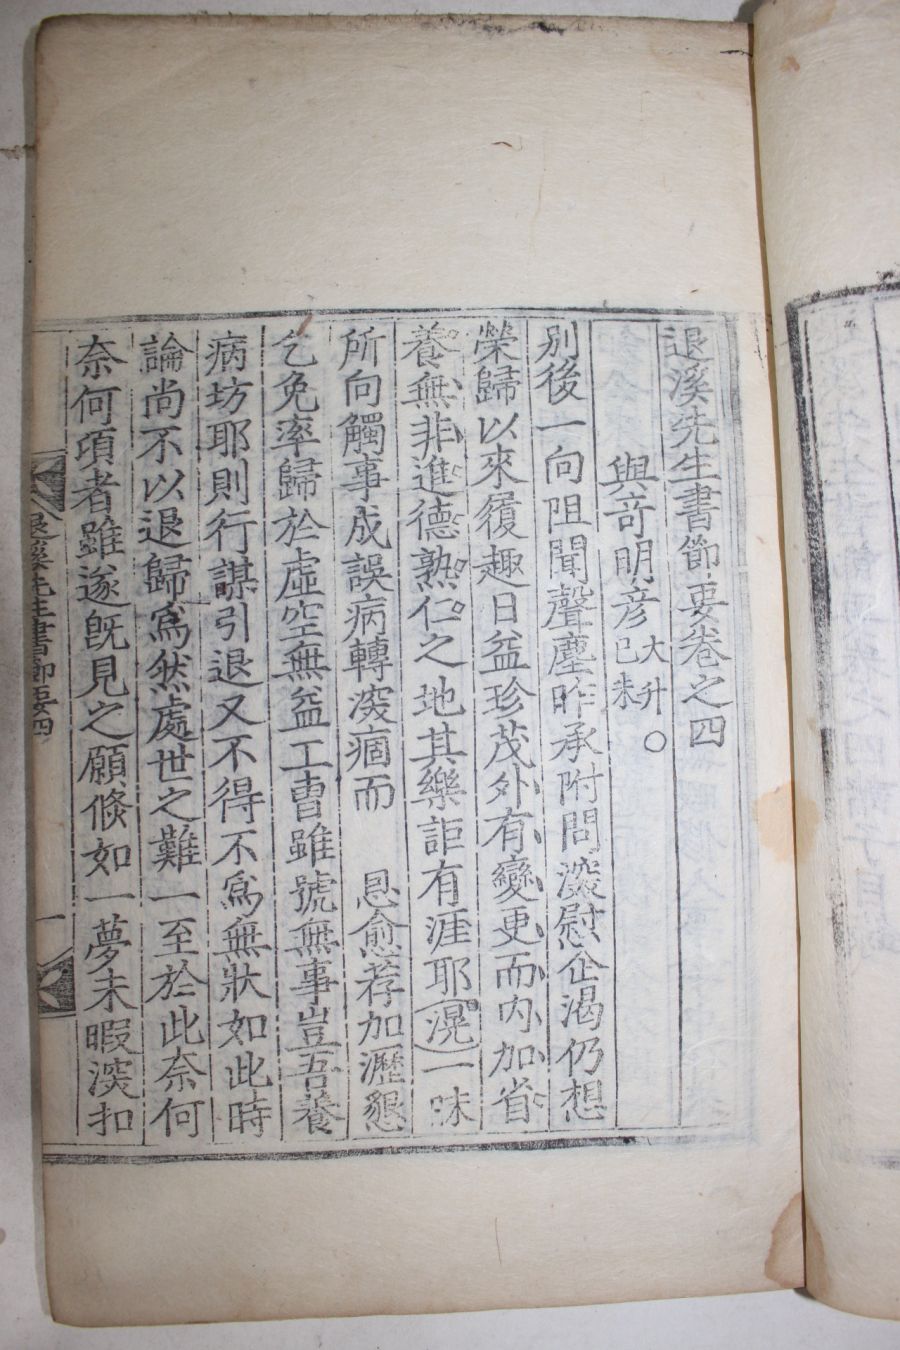 退溪先生書節要卷之四
與奇明彦 大升 己未 ○
別後一向阻聞聲塵昨承附問深慰企渴仍想
榮歸以來履趣日益珍茂外有變更而內加省
養無非進德熟仁之地其樂詎有涯耶滉一味
所向觸事成誤病轉深痼而 恩愈荐加瀝懇
乞免率歸於虛空無益工曺雖號無事豈吾養
病坊耶則行謀引退又不得不爲無狀如此時
論尚不以退歸爲然處世之難一至於此奈何
奈何項者雖遂旣見之願倏如一夢未暇深扣
退溪先生書節要四
一